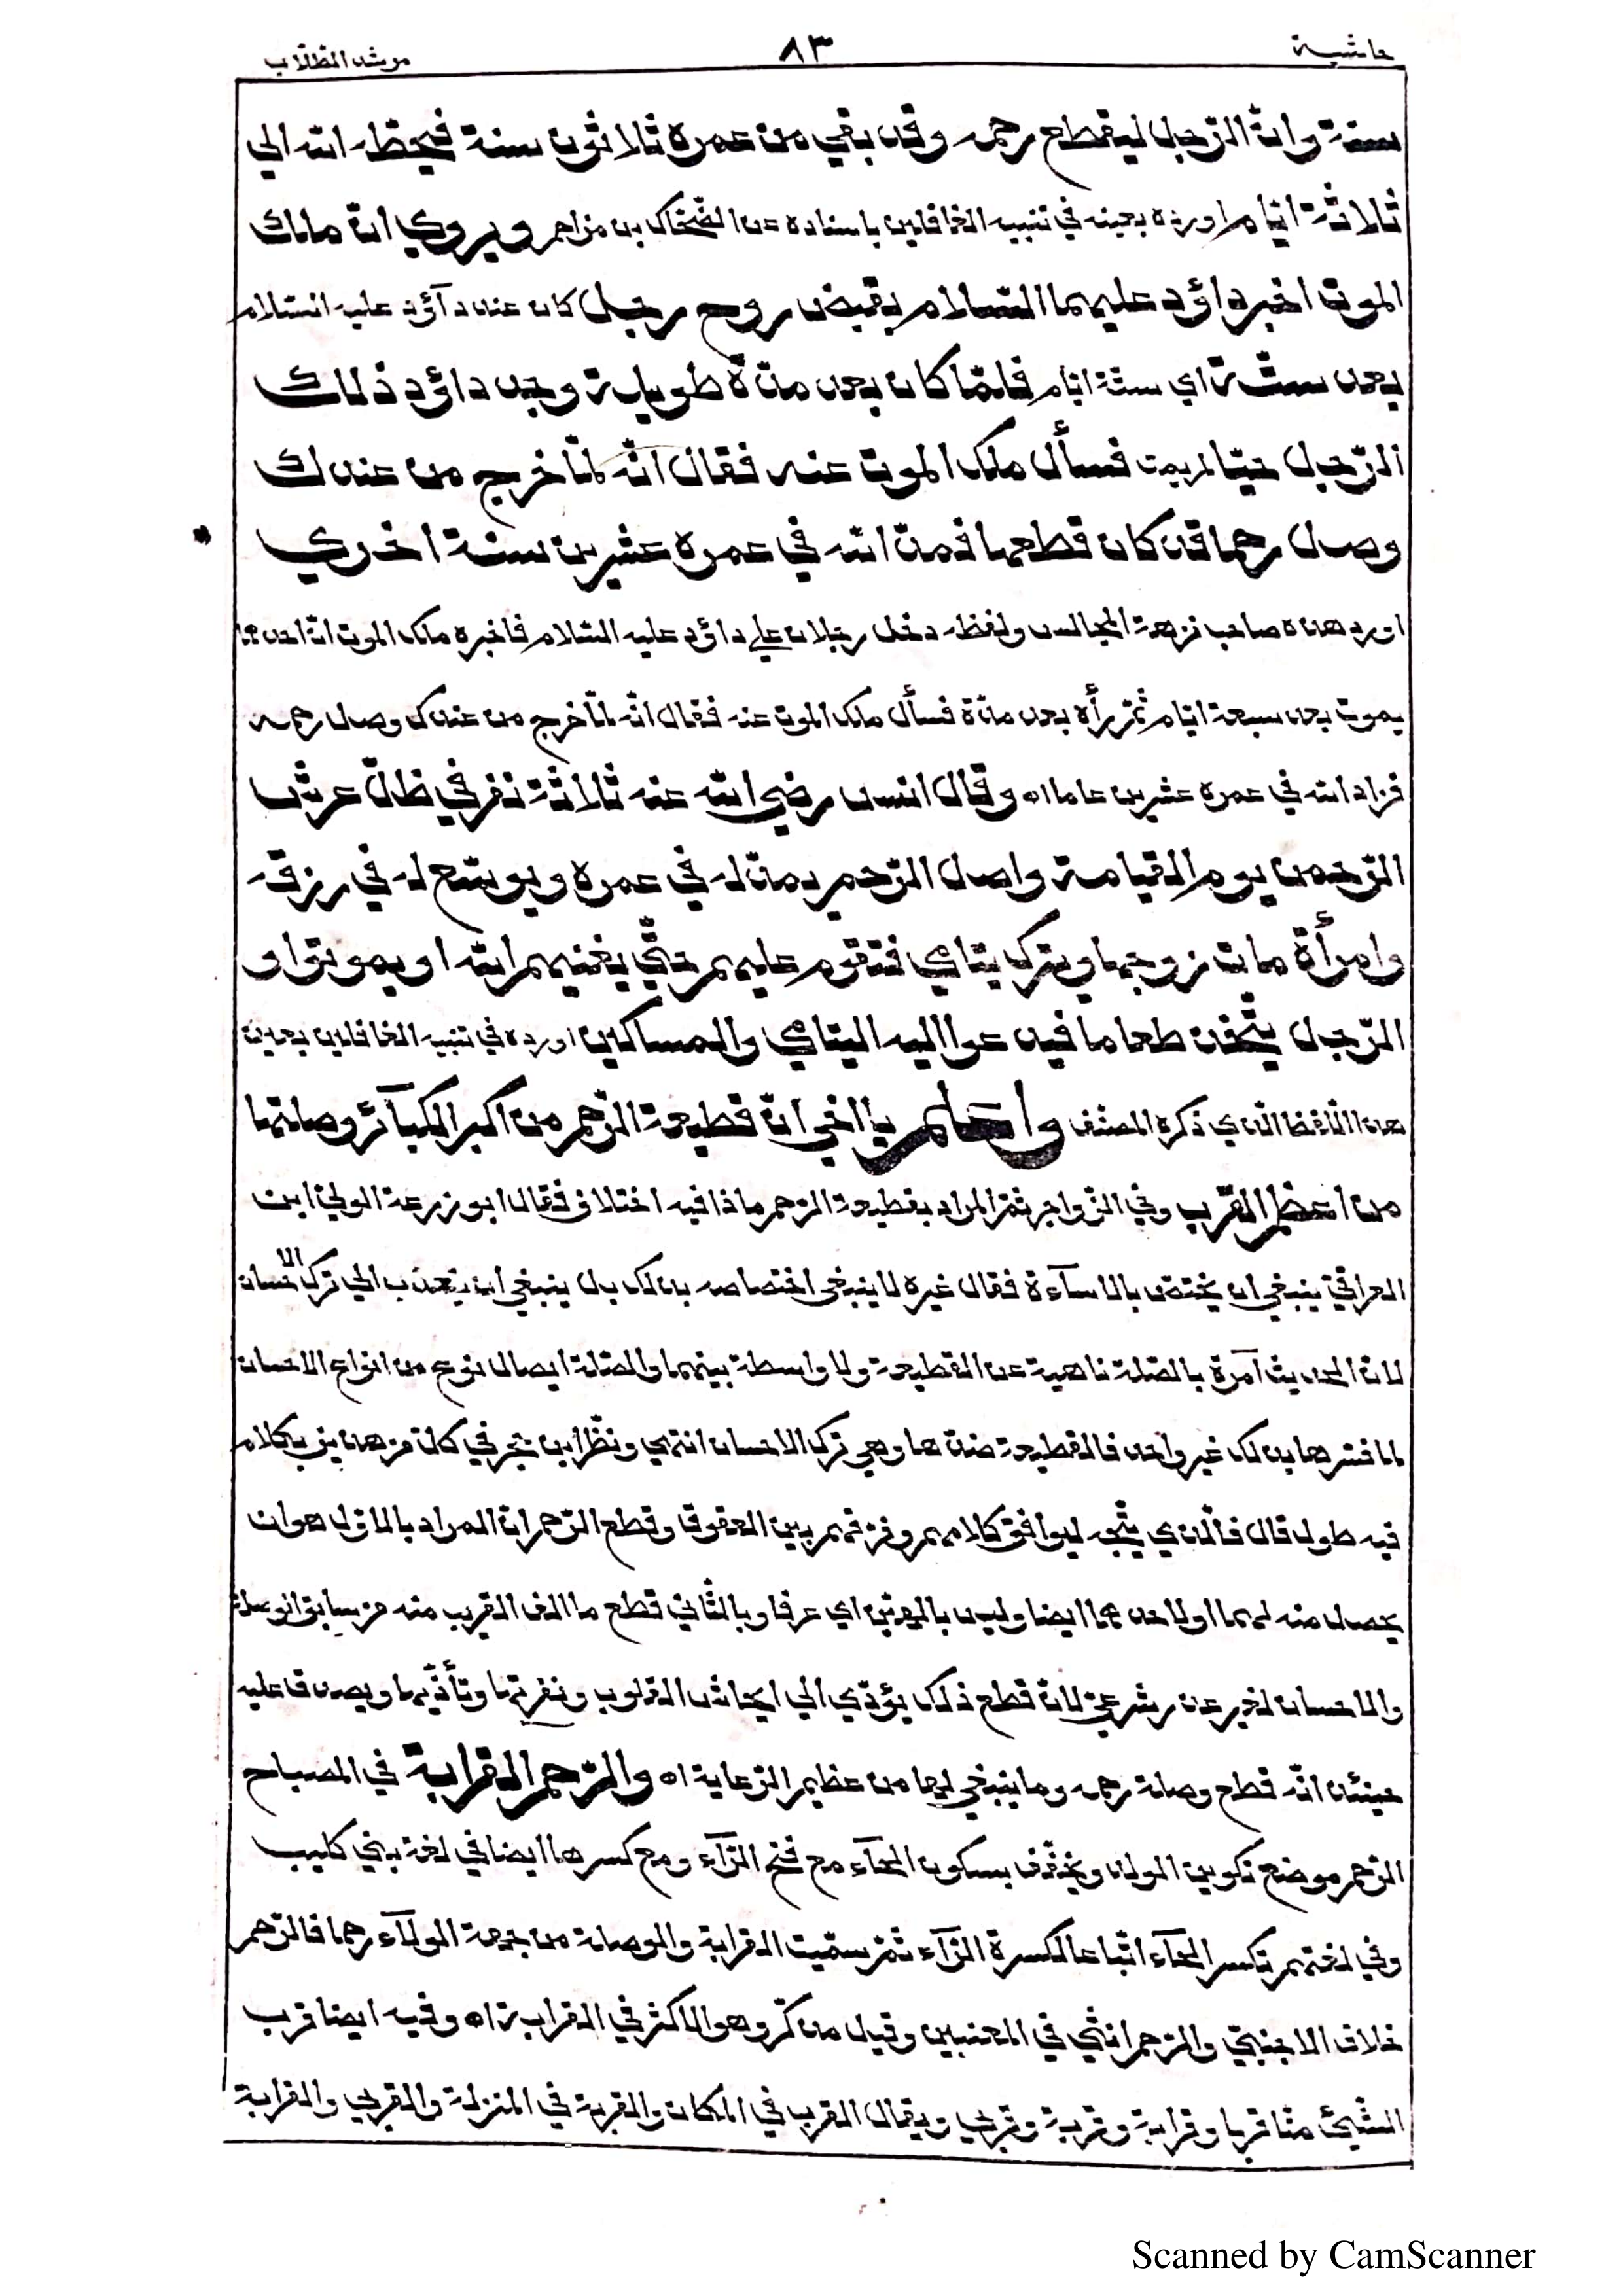 حاشية ٨٣ مرشد الطلّاب
سنة وانّ الرّجل ليقطع رحمه وقد بقي من عمره ثلاثون سنة فيحطه الله الي
ثلاثة ايّام اورده بعينه في تنبيه الغافلين باسناده عن الضّحّاك بن مزاحم ويروي انّ ملك
الموت اخبر داؤد عليهما السّلام بقبض روح رجل كان عند دآؤد عليه السّلام
بعد ستّة اي ستّة ايّام فلمّا كان بعد مدّة طويلة وجد داؤد ذلك
الرّجل حيّا لم يمت فسأل ملك الموت عنه فقال انّه لمّا خرج من عندك
وصل رحما قد كان قطعها فمدّ الله في عمره عشرين سنة اخري
اورد هذه صاحب نزهة المجالس ولفظه دخل رجلان علي داؤد عليه السّلام فاخبره ملك الموت انّ احدهما
يموت بعد سبعة ايّام ثمّ رأه بعد مدّة فسأل ملك الموت عنه فقال انّه لمّا خرج من عندك وصل رحمه
فزاد الله في عمره عشرين عاما اه وقال انس رضي الله عنه ثلاثة نفر في ظلّ عرش
الرّحمن يوم القيامة واصل الرّحم يمدّ له في عمره ويوسّع له في رزقه
وامرأة مات زوجها ويترك يتامي فتقوم عليهم حتّي يغنيهم الله او يموتوا و
الرّجل يتّخذ طعاما فيدعوا اليه اليتامي والمساكين اورده في تنبيه الغافلين بعين
هذا اللّفظ الّذي ذكره المصنّف واعلم يا اخي انّ قطيعة الرّحم من اكبر الكبآئر وصلتها
من اعظم القرب وفي الزّواجر ثمّ المراد بقطيعة الرّحم ماذا فيه اختلاف فقال ابو زرعة الولي ابن
العراقيّ ينبغي ان يختصّ بالاسآءة فقال غيره لا ينبغي اختصاصه بذلك بل ينبغي ان يتعدّب الي ترك الاحسان
لانّ الحديث آمرة بالصّلة ناهية عن القطيعة ولا واسطة بينهما والصّلة ايصال نوع من انواع الاحسان
لما فسّرها بذلك غير واحد فالقطيعة ضدّها وهي ترك الاحسان انتهي ونظر ابن حجر في كلّ من هذين بكلام
فيه طول قال فالّذي يتّجه ليوافق كلامهم وفرّقهم بين العقوق وقطع الرّحم انّ المراد بالاوّل هو ان
يحصل منه لهما او لاحدهما ايضا وليس بالهيّن اي عرفا وبالثّاني قطع ما الف القريب منه من سابق الوصلة
والاحسان لغير عذر شرعيّ لانّ قطع ذلك يؤدّي الي ايحاش القلوب ونفرتها وتأذّيها ويصدق عليه
حينئذ انّه قطع وصلة رحمه وما ينبغي لها من عظيم الرّعاية اه والرّحم القرابة في المصباح
الرّحم موضع تكوين الولد ويخفّف بسكون الحآء مع فتح الرّآء ومع كسرها ايضا في لغة بني كليب
وفي لغتهم تكسر الحآء اتّباعا لكسرة الرّآء ثمّ سمّيت القرابة والوصلة من جهة الولآء رحما فالرّحم
خلاف الاجنبيّ والرّحم انثي في المعنيين وقيل مذكّر وهو الاكثر في القرابة اه وفيه ايضا قرب
الشّيئ منّا قربا وقرابة وقربة وقربي ويقال القرب في المكان والقربة في المنزلة والقربي والقرابة
Scanned by CamScanner